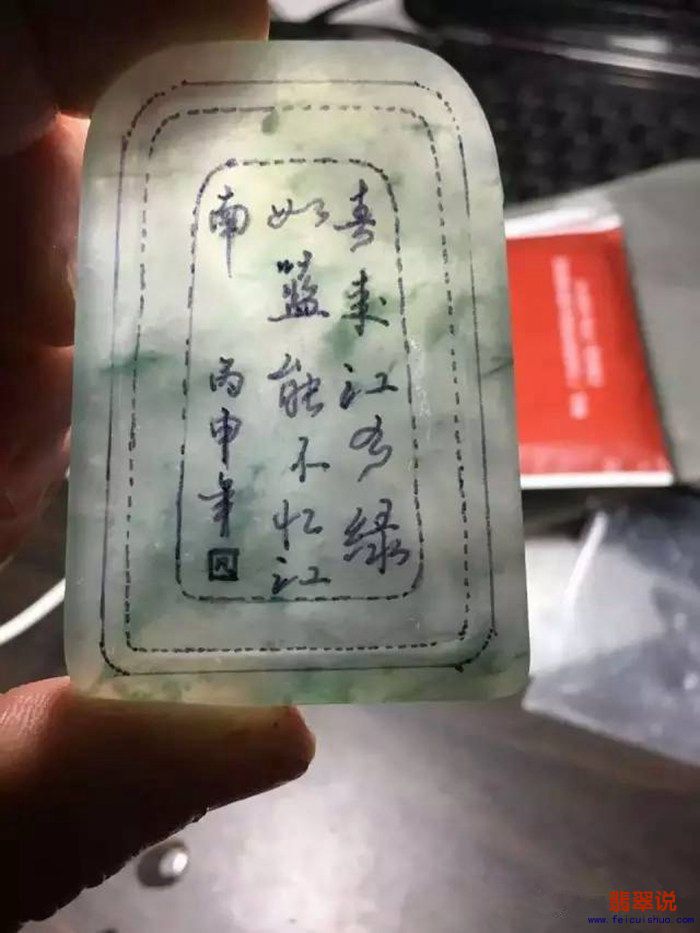 春来江水绿
如蓝能不忆江
南 丙申年
翡翠说
www.feicuishuo.com